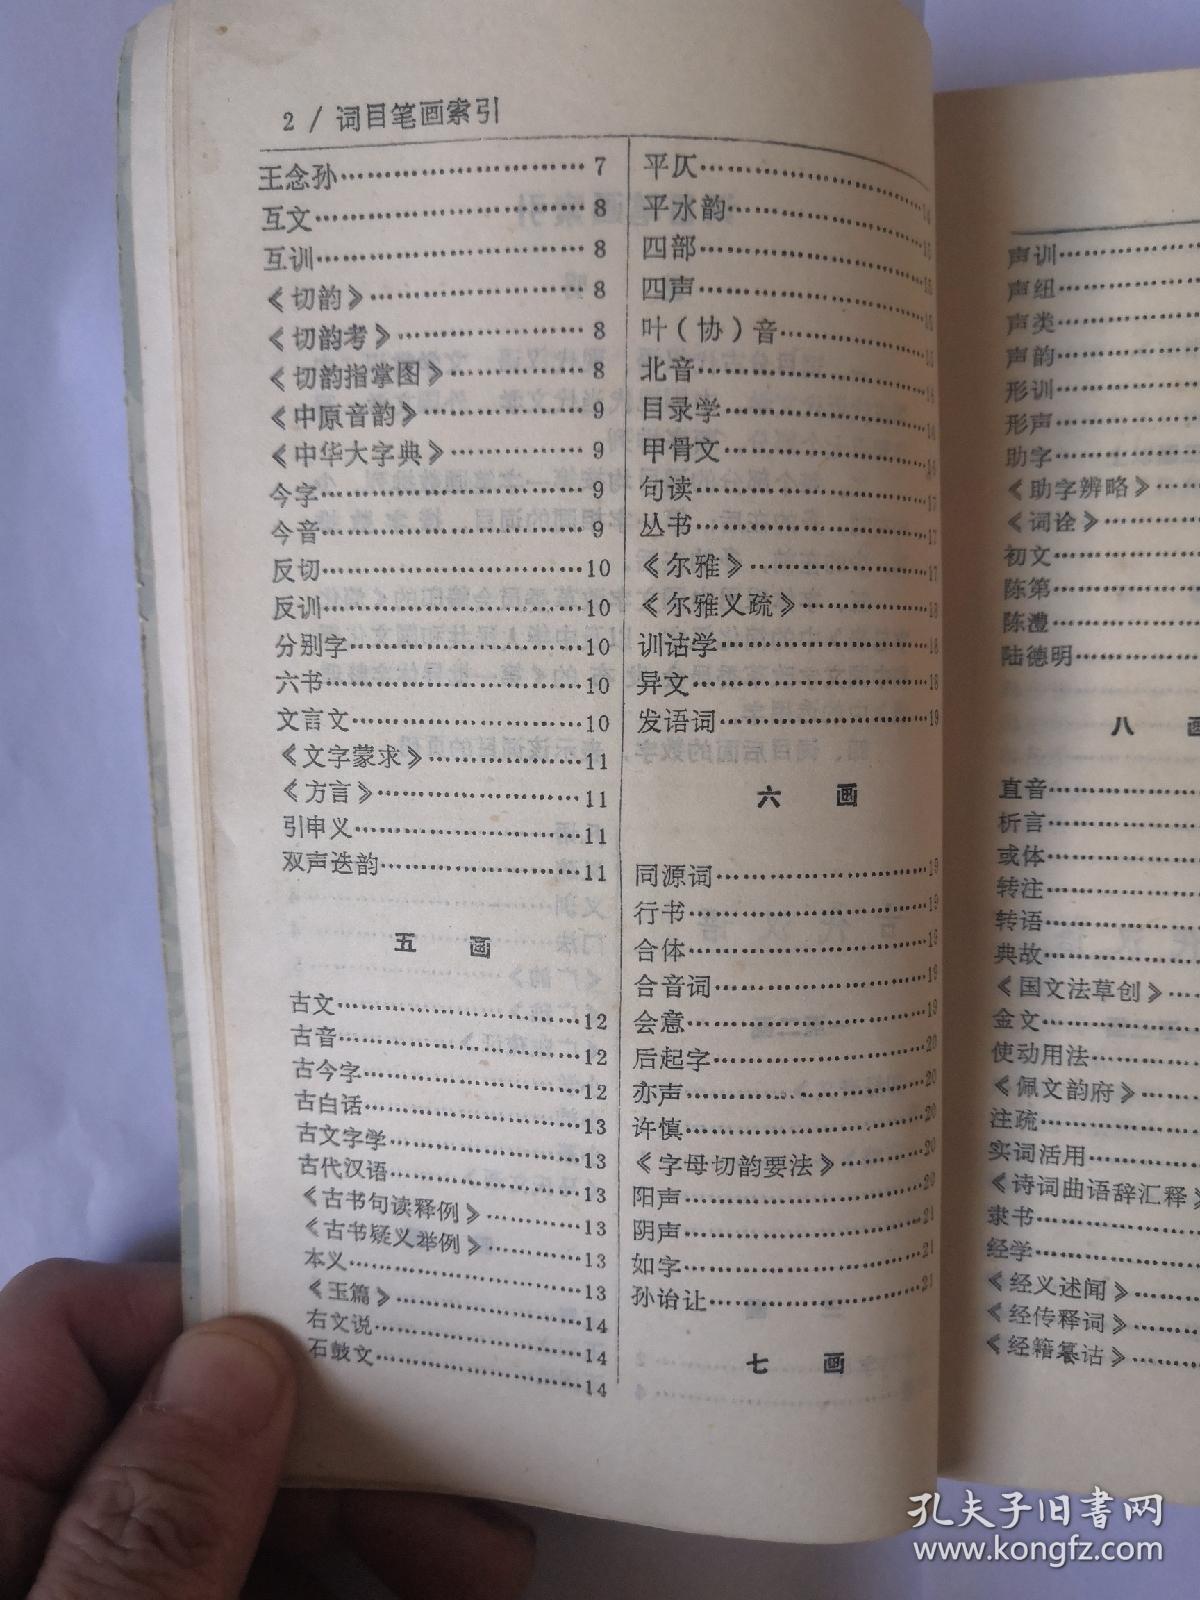 2 / 词目笔画索引
王念孙…………………………7
互文……………………………8
互训……………………………8
《切韵》………………………8
《切韵考》……………………8
《切韵指掌图》………………8
《中原音韵》…………………9
《中华大字典》………………9
今字……………………………9
今音……………………………9
反切……………………………10
反训……………………………10
分别字…………………………10
六书……………………………10
文言文…………………………10
《文字蒙求》…………………11
《方言》………………………11
引申义…………………………11
双声迭韵………………………11
五 画
古文……………………………12
古音……………………………12
古今字…………………………12
古白话…………………………13
古文字学………………………13
古代汉语………………………13
《古书句读释例》……………13
《古书疑义举例》……………13
本义……………………………13
《玉篇》………………………14
右文说…………………………14
石鼓文…………………………14
平仄……………………………14
平水韵…………………………15
四部……………………………15
四声……………………………
叶(协)音……………………
北音……………………………
目录学…………………………
甲骨文…………………………
句读……………………………17
丛书……………………………17
《尔雅》………………………17
《尔雅义疏》…………………18
训诂学…………………………18
异文……………………………18
发语词…………………………19
六 画
同源词…………………………19
行书……………………………19
合体……………………………19
合音词…………………………19
会意……………………………19
后起字…………………………20
亦声……………………………20
许慎……………………………20
《字母切韵要法》……………20
阳声……………………………20
阴声……………………………21
如字……………………………21
孙诒让…………………………21
七 画
声训
声纽
声类
声韵
形训
形声
助字
《助字辨略》
《词诠》
初文
陈第
陈澧
陆德明
八 画
直音
析言
或体
转注
转语
典故
《国文法草创》
金文
使动用法
《佩文韵府》
注疏
实词活用
《诗词曲语辞汇释》
隶书
经学
《经义述闻》
《经传释词》
《经籍纂诂》
孔夫子旧书网
www.kongfz.com